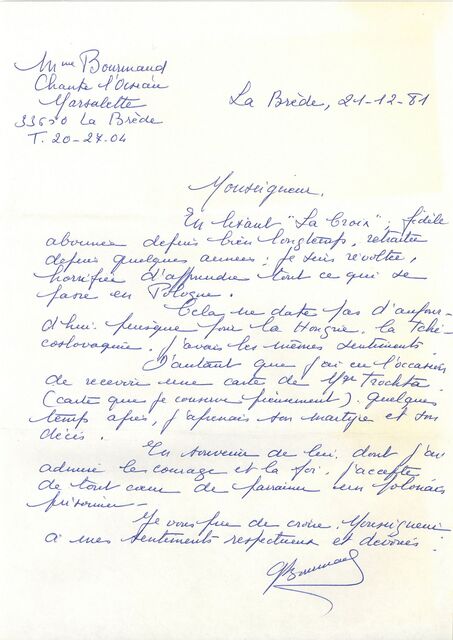 Mme Bourmaud
Chante l'Oiseau
Marsalette
33650 La Brède
T. 20-27.04
La Brède, 21-12-81
Monseigneur.
En lisant "La Croix", fidèle
abonnée depuis bien longtemps, retraitée
depuis quelques années; je suis révoltée,
horrifiée d'apprendre tout ce qui se
passe en Pologne.
Cela ne date pas d'aujour-
d'hui puisque pour la Hongrie, la Tché-
coslovaquie, j'avais les mêmes sentiments.
D'autant que j'ai eu l'occasion
de recevoir une carte de Mgr Trochta
(carte que je conserve pieusement). Quelques
temps après, j'apprenais son martyre et son
décès.
En souvenir de lui dont j'ai
admiré le courage et la foi, j'accepte
de tout cœur de parrainer un polonais
prisonnier -
Je vous prie de croire, Monseigneur
à mes sentiments respectueux et dévoués.
Bourmaud